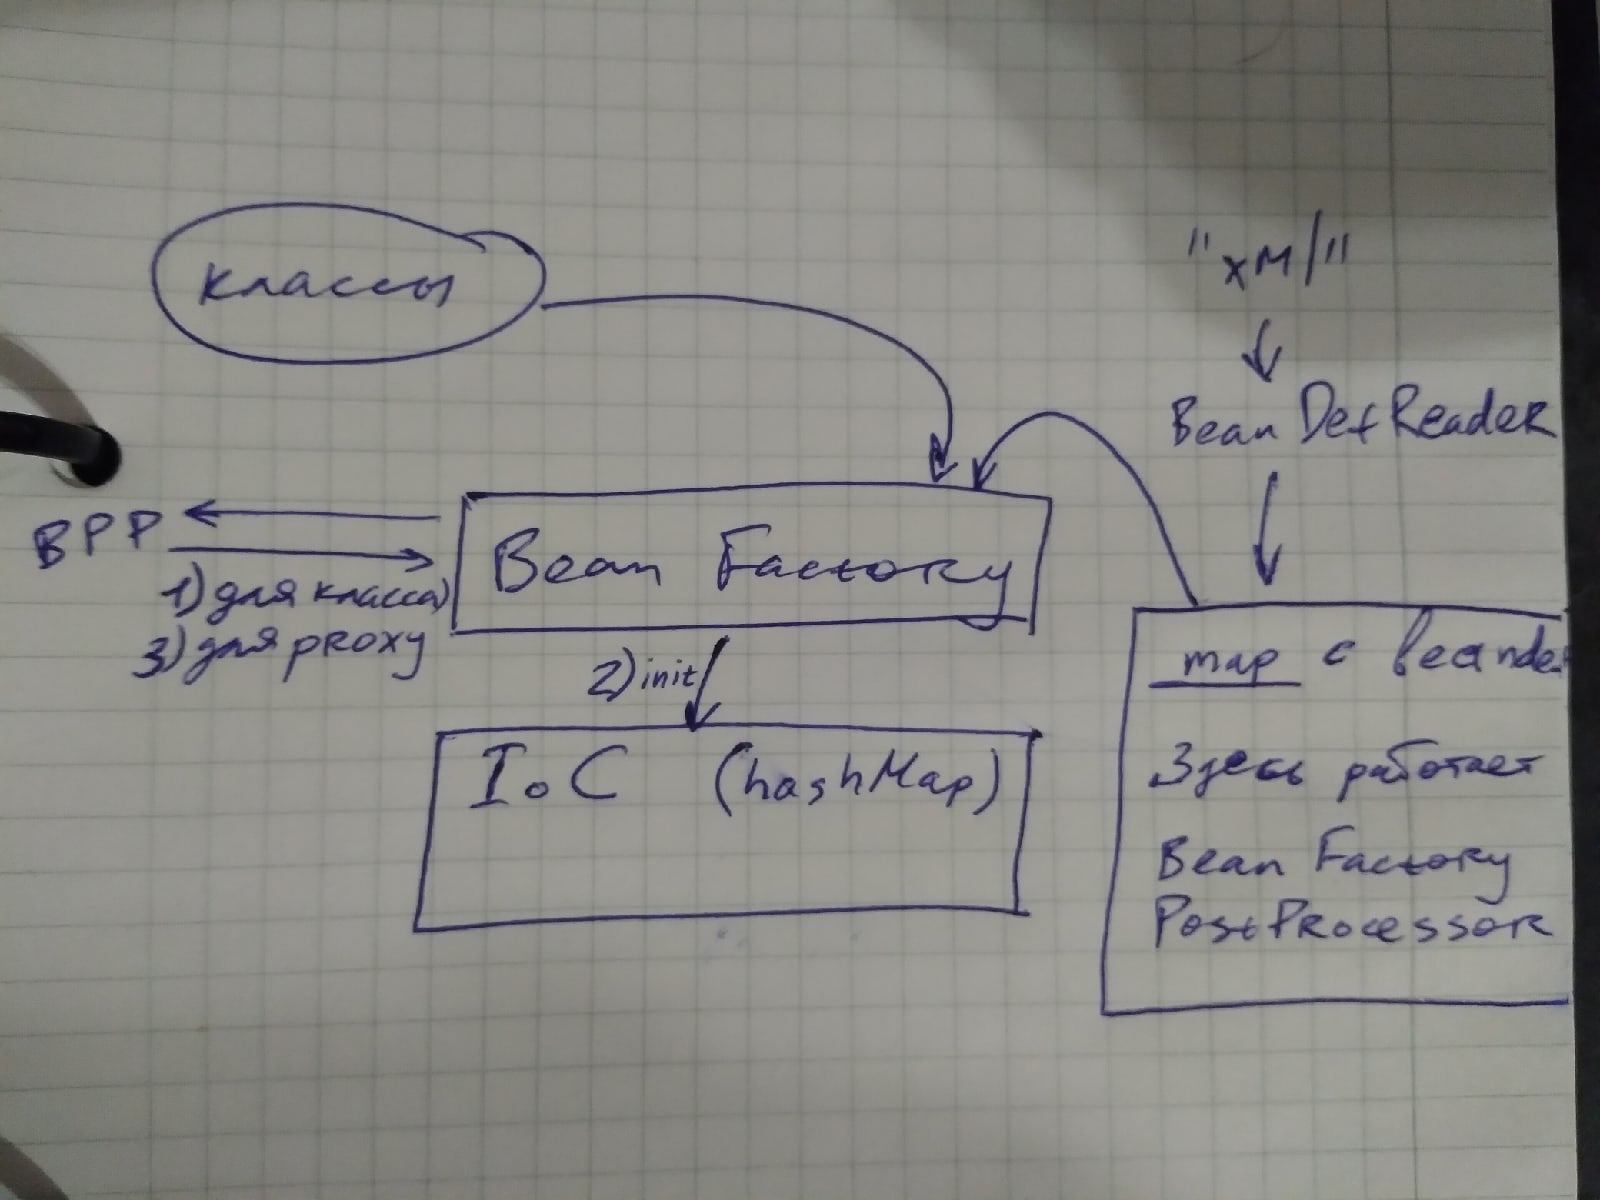 классы
"xml"
Bean DefReader
BPP
1) для класса)
3) для proxy
Bean Factory
2) init
IoC (hashMap)
map с beandef
Здесь работает
Bean Factory
PostProcessor